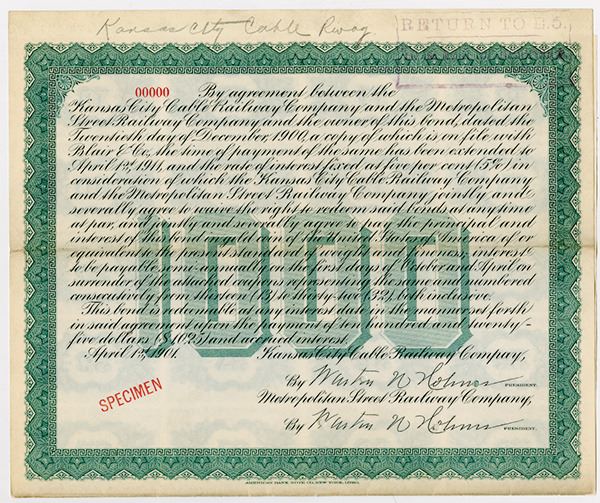 Kansas City Cable Rway
RETURN TO D.5.
00000
By agreement between the
Kansas City Cable Railway Company and the Metropolitan
Street Railway Company and the owner of this bond, dated the
Twentieth day of December, 1900, a copy of which is on file with
Blair & Co, the time of payment of the same has been extended to
April 1st, 1911, and the rate of interest fixed at five per cent (5%) in
consideration of which the Kansas City Cable Railway Company
and the Metropolitan Street Railway Company jointly and
severally agree the right to redeem said bonds at any time
at par, and agree to pay the principal and
interest of this bond in gold coin of the United States of America of or
equivalent to the present standard of weight and fineness, interest
to be payable semi-annually on the first days of October and April on
surrender of the attached coupons for the same numbered
consecutively from (32), both inclusive.
This bond is redeemable at any interest day in the manner set forth
in said agreement upon the payment of ten hundred and twenty-
five dollars ($1025) and accrued interest.
April 1st, 1901.
Kansas City Cable Railway Company,
By Walton H Holmes PRESIDENT.
Metropolitan Street Railway Company,
By Walton H Holmes PRESIDENT.
1000
SPECIMEN
AMERICAN BANK NOTE CO. NEW YORK.